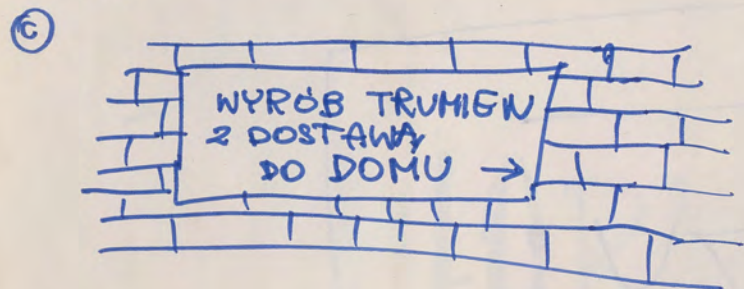 ©
WYRÓB TRUMIEN
Z DOSTAWĄ
DO DOMU →